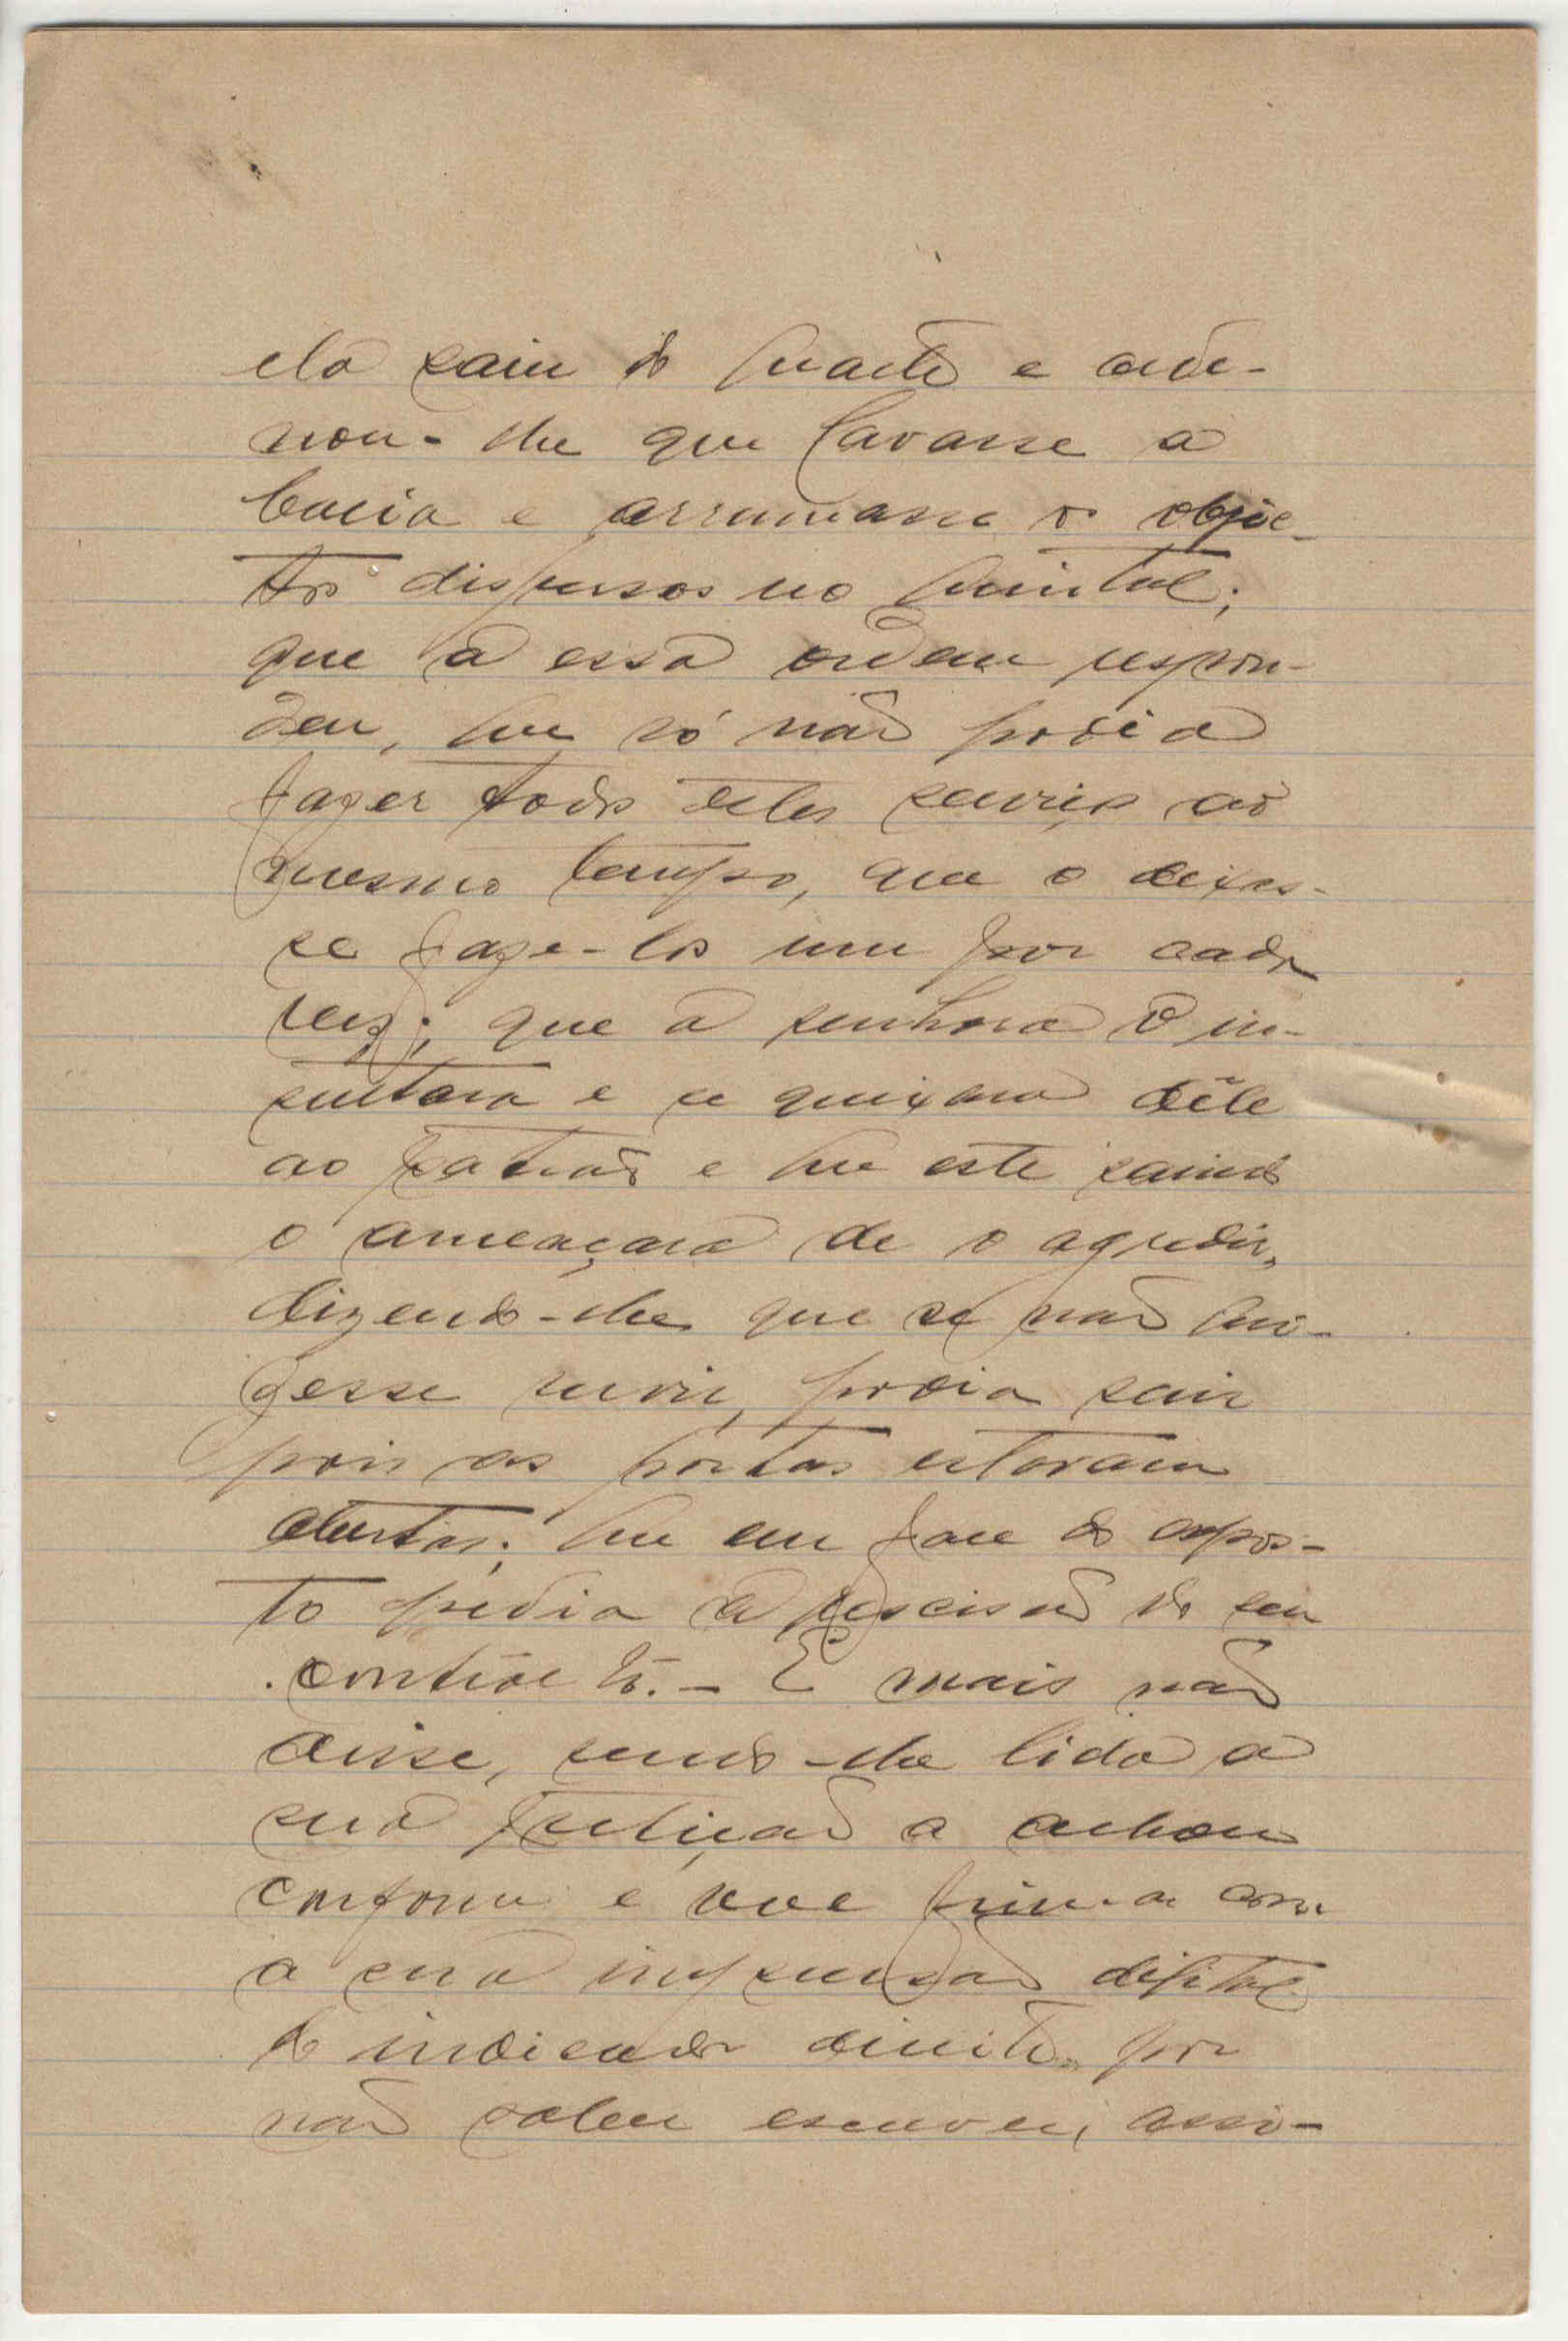 ela saiu do quarto e orde-
nou-lhe que lavasse a
bacia e arrumasse os objec-
tos dispersos no quintal;
que a essa ordem respon-
deu, que só não podia
fazer todos estes serviços ao
mesmo tempo, que o deixas-
se faze-los um por cada
vez; que a senhora o in-
sultara e se queixara dêle
ao patrão e que este saindo
o ameaçara de o agredir,
dizendo-lhe que se não qui-
zesse servir, podia sair
pois as portas estavam
abertas; que em face do expos-
to pedia a rescisão do seu
contracto.- E mais não
disse, sendo-lhe lida a
sua petição a achou
conforme e vae firma-a com
a sua impressão digital
do indicador direito por
não saber escrever, assi-